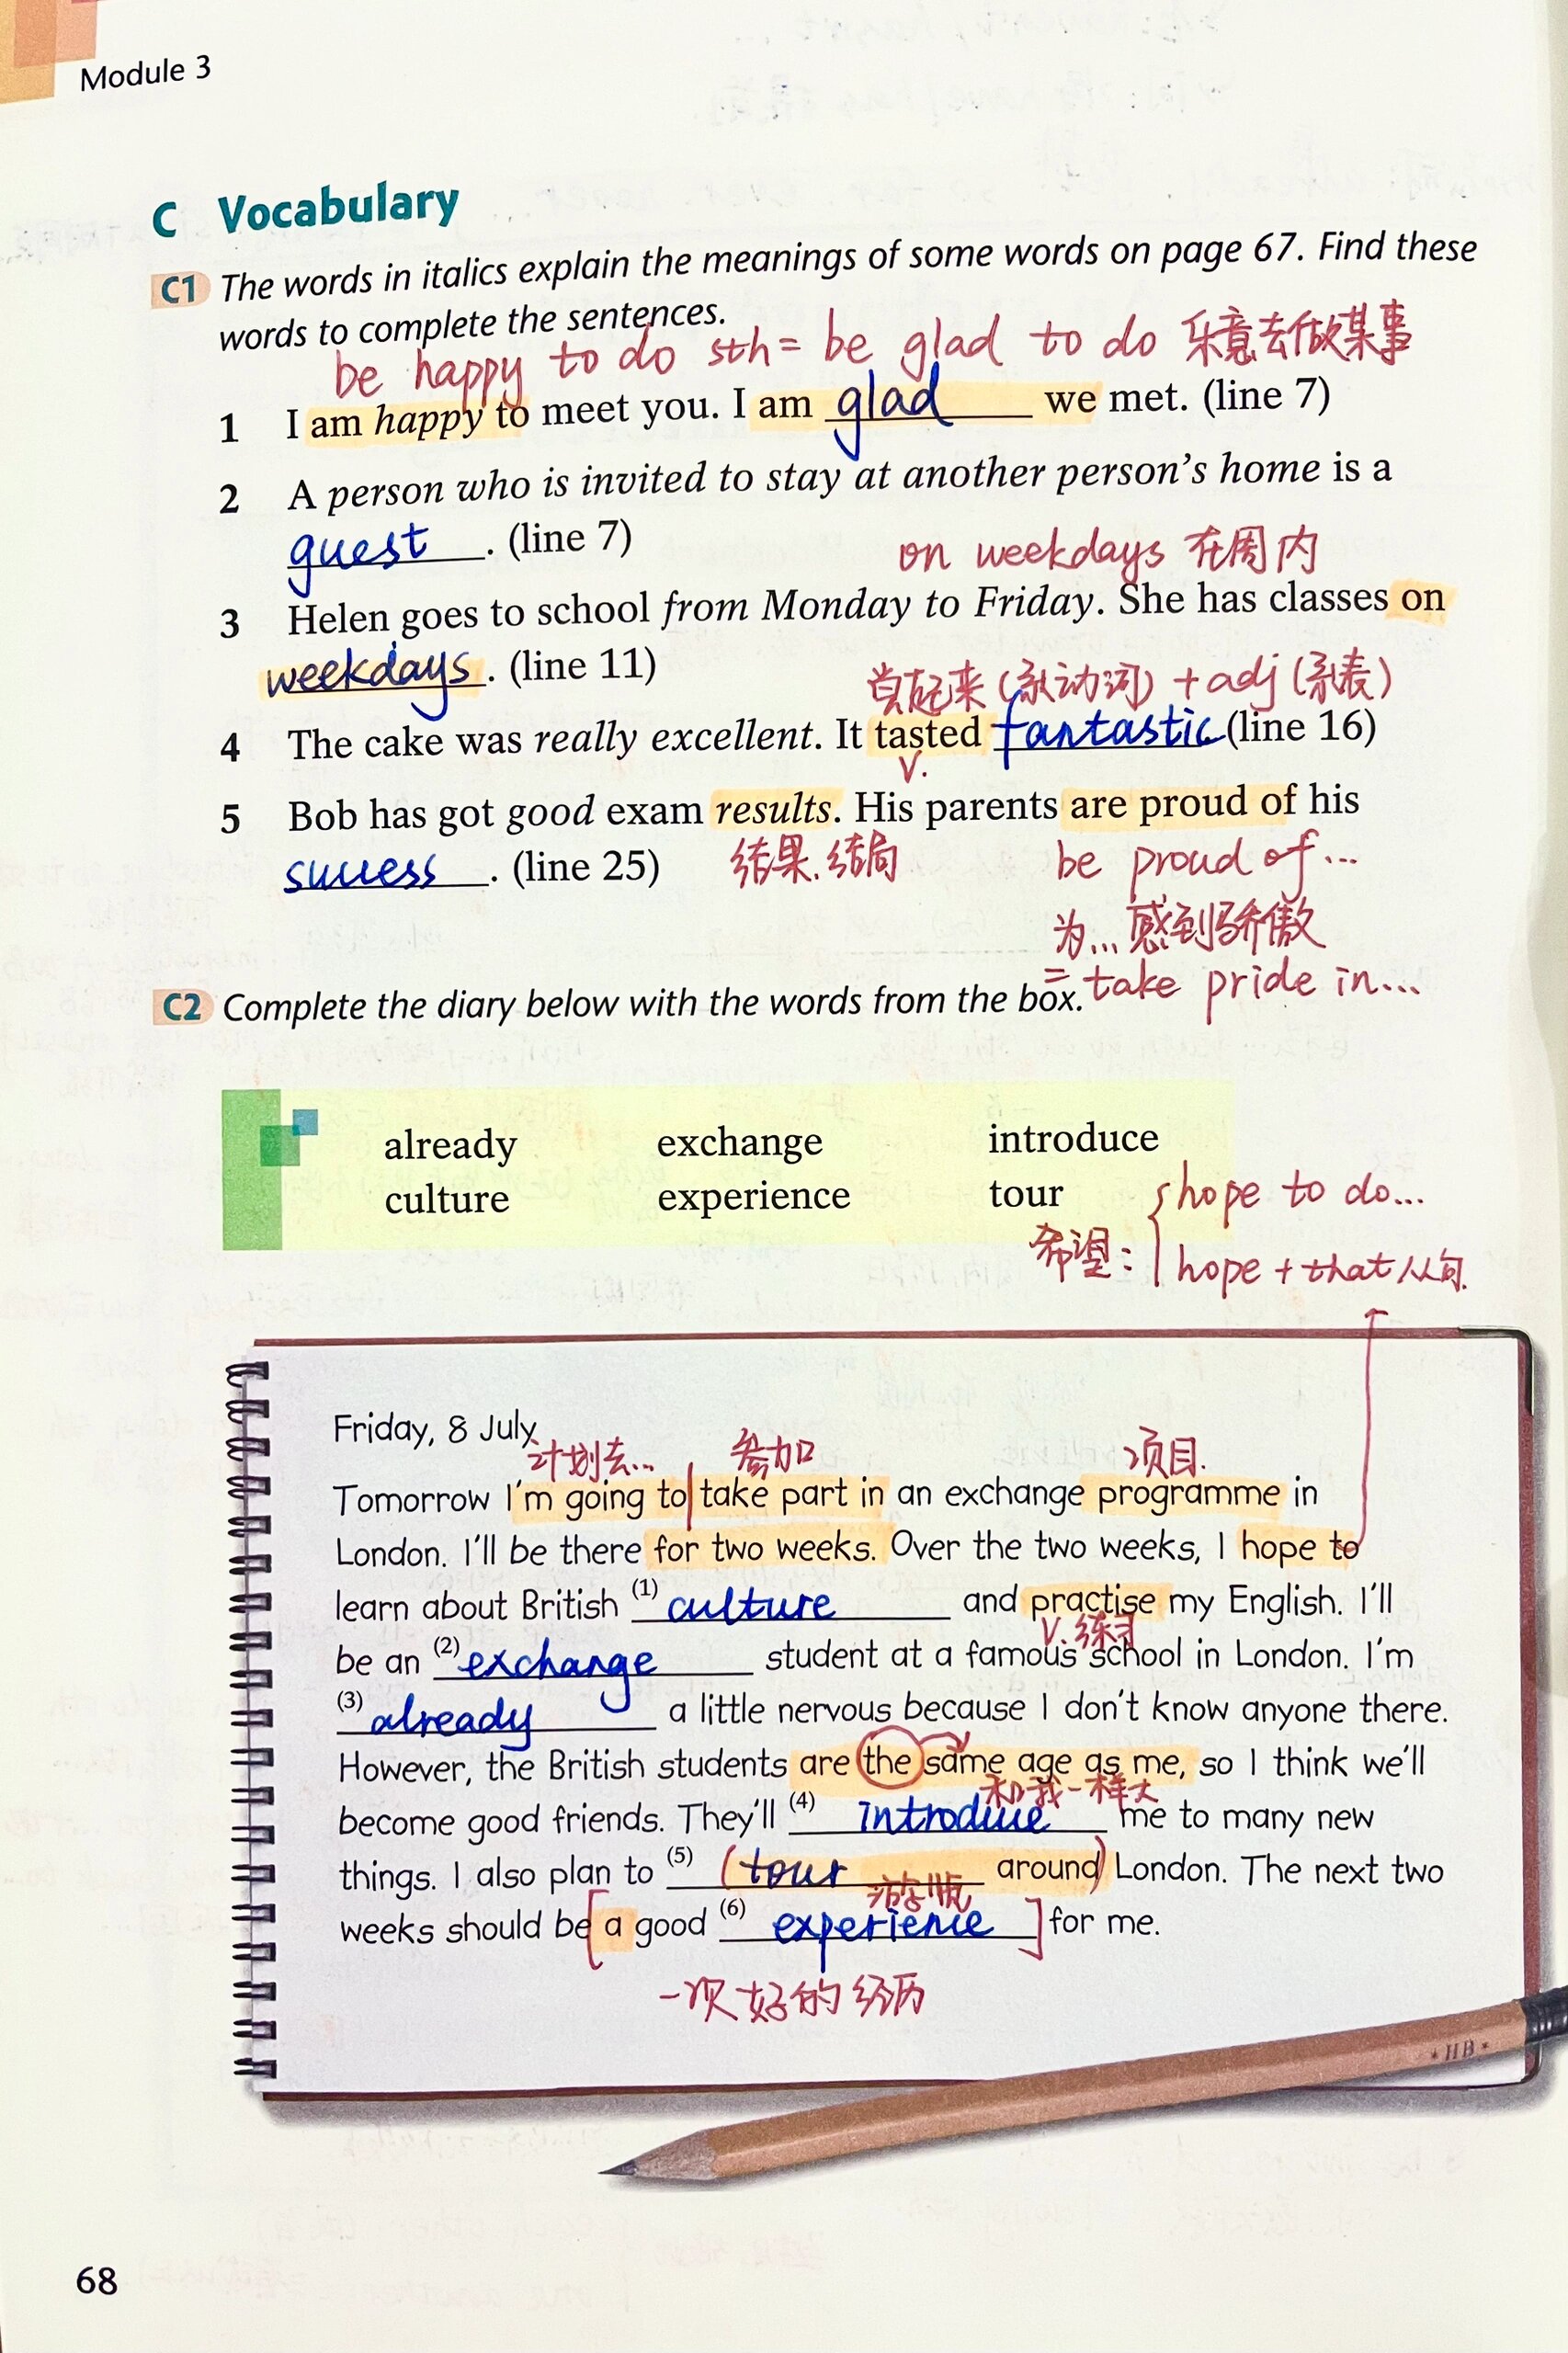 Module 3
C Vocabulary
C1 The words in italics explain the meanings of some words on page 67. Find these
words to complete the sentences.
be happy to do sth = be glad to do 乐意去做某事
1 I am happy to meet you. I am glad we met. (line 7)
2 A person who is invited to stay at another person's home is a
guest. (line 7)
on weekdays 在周内
3 Helen goes to school from Monday to Friday. She has classes on
weekdays. (line 11)
尝起来(系动词)+adj(系表)
4 The cake was really excellent. It tasted fantastic (line 16)
v.
5 Bob has got good exam results. His parents are proud of his
success. (line 25)
结果.结局
be proud of...
为...感到骄傲
= take pride in...
C2 Complete the diary below with the words from the box.
already exchange introduce
culture experience tour
hope to do...
希望:
hope + that从句.
Friday, 8 July
计划去... 参加 项目.
Tomorrow I'm going to take part in an exchange programme in
London. I'll be there for two weeks. Over the two weeks, I hope to
learn about British (1) culture and practise my English. I'll
v.练习
be an (2) exchange student at a famous school in London. I'm
(3) already a little nervous because I don't know anyone there.
However, the British students are the same age as me, so I think we'll
和我一样大
become good friends. They'll (4) introduce me to many new
things. I also plan to (5) (tour around) London. The next two
游览
weeks should be [a good (6) experience] for me.
一次好的经历
HB
68